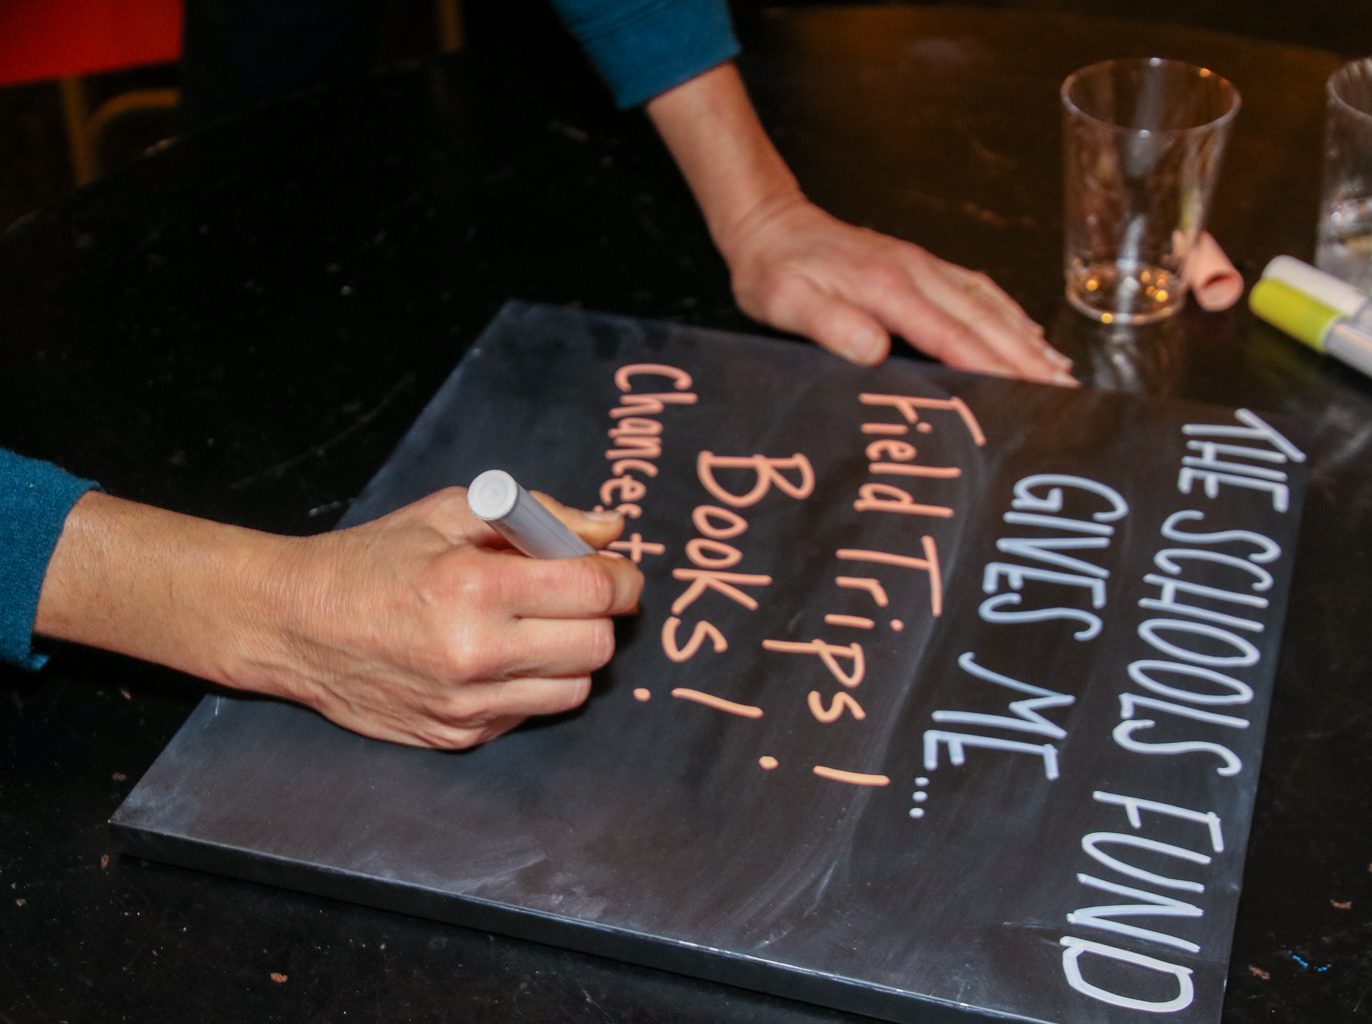 THE SCHOOLS FUND
GIVES ME...
Field Trips!
Books!
Chances t